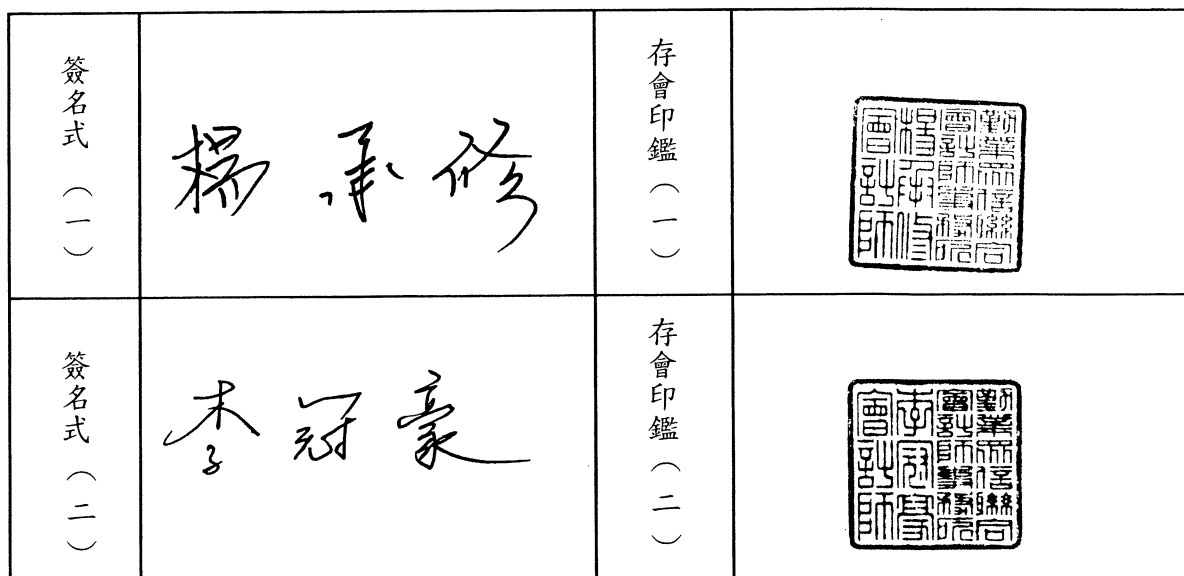 簽名式（一）
楊承修
存會印鑑（一）
勤業眾信聯合
會計師事務所
楊承修
會計師
簽名式（二）
李冠豪
存會印鑑（二）
勤業眾信聯合
會計師事務所
李冠豪
會計師